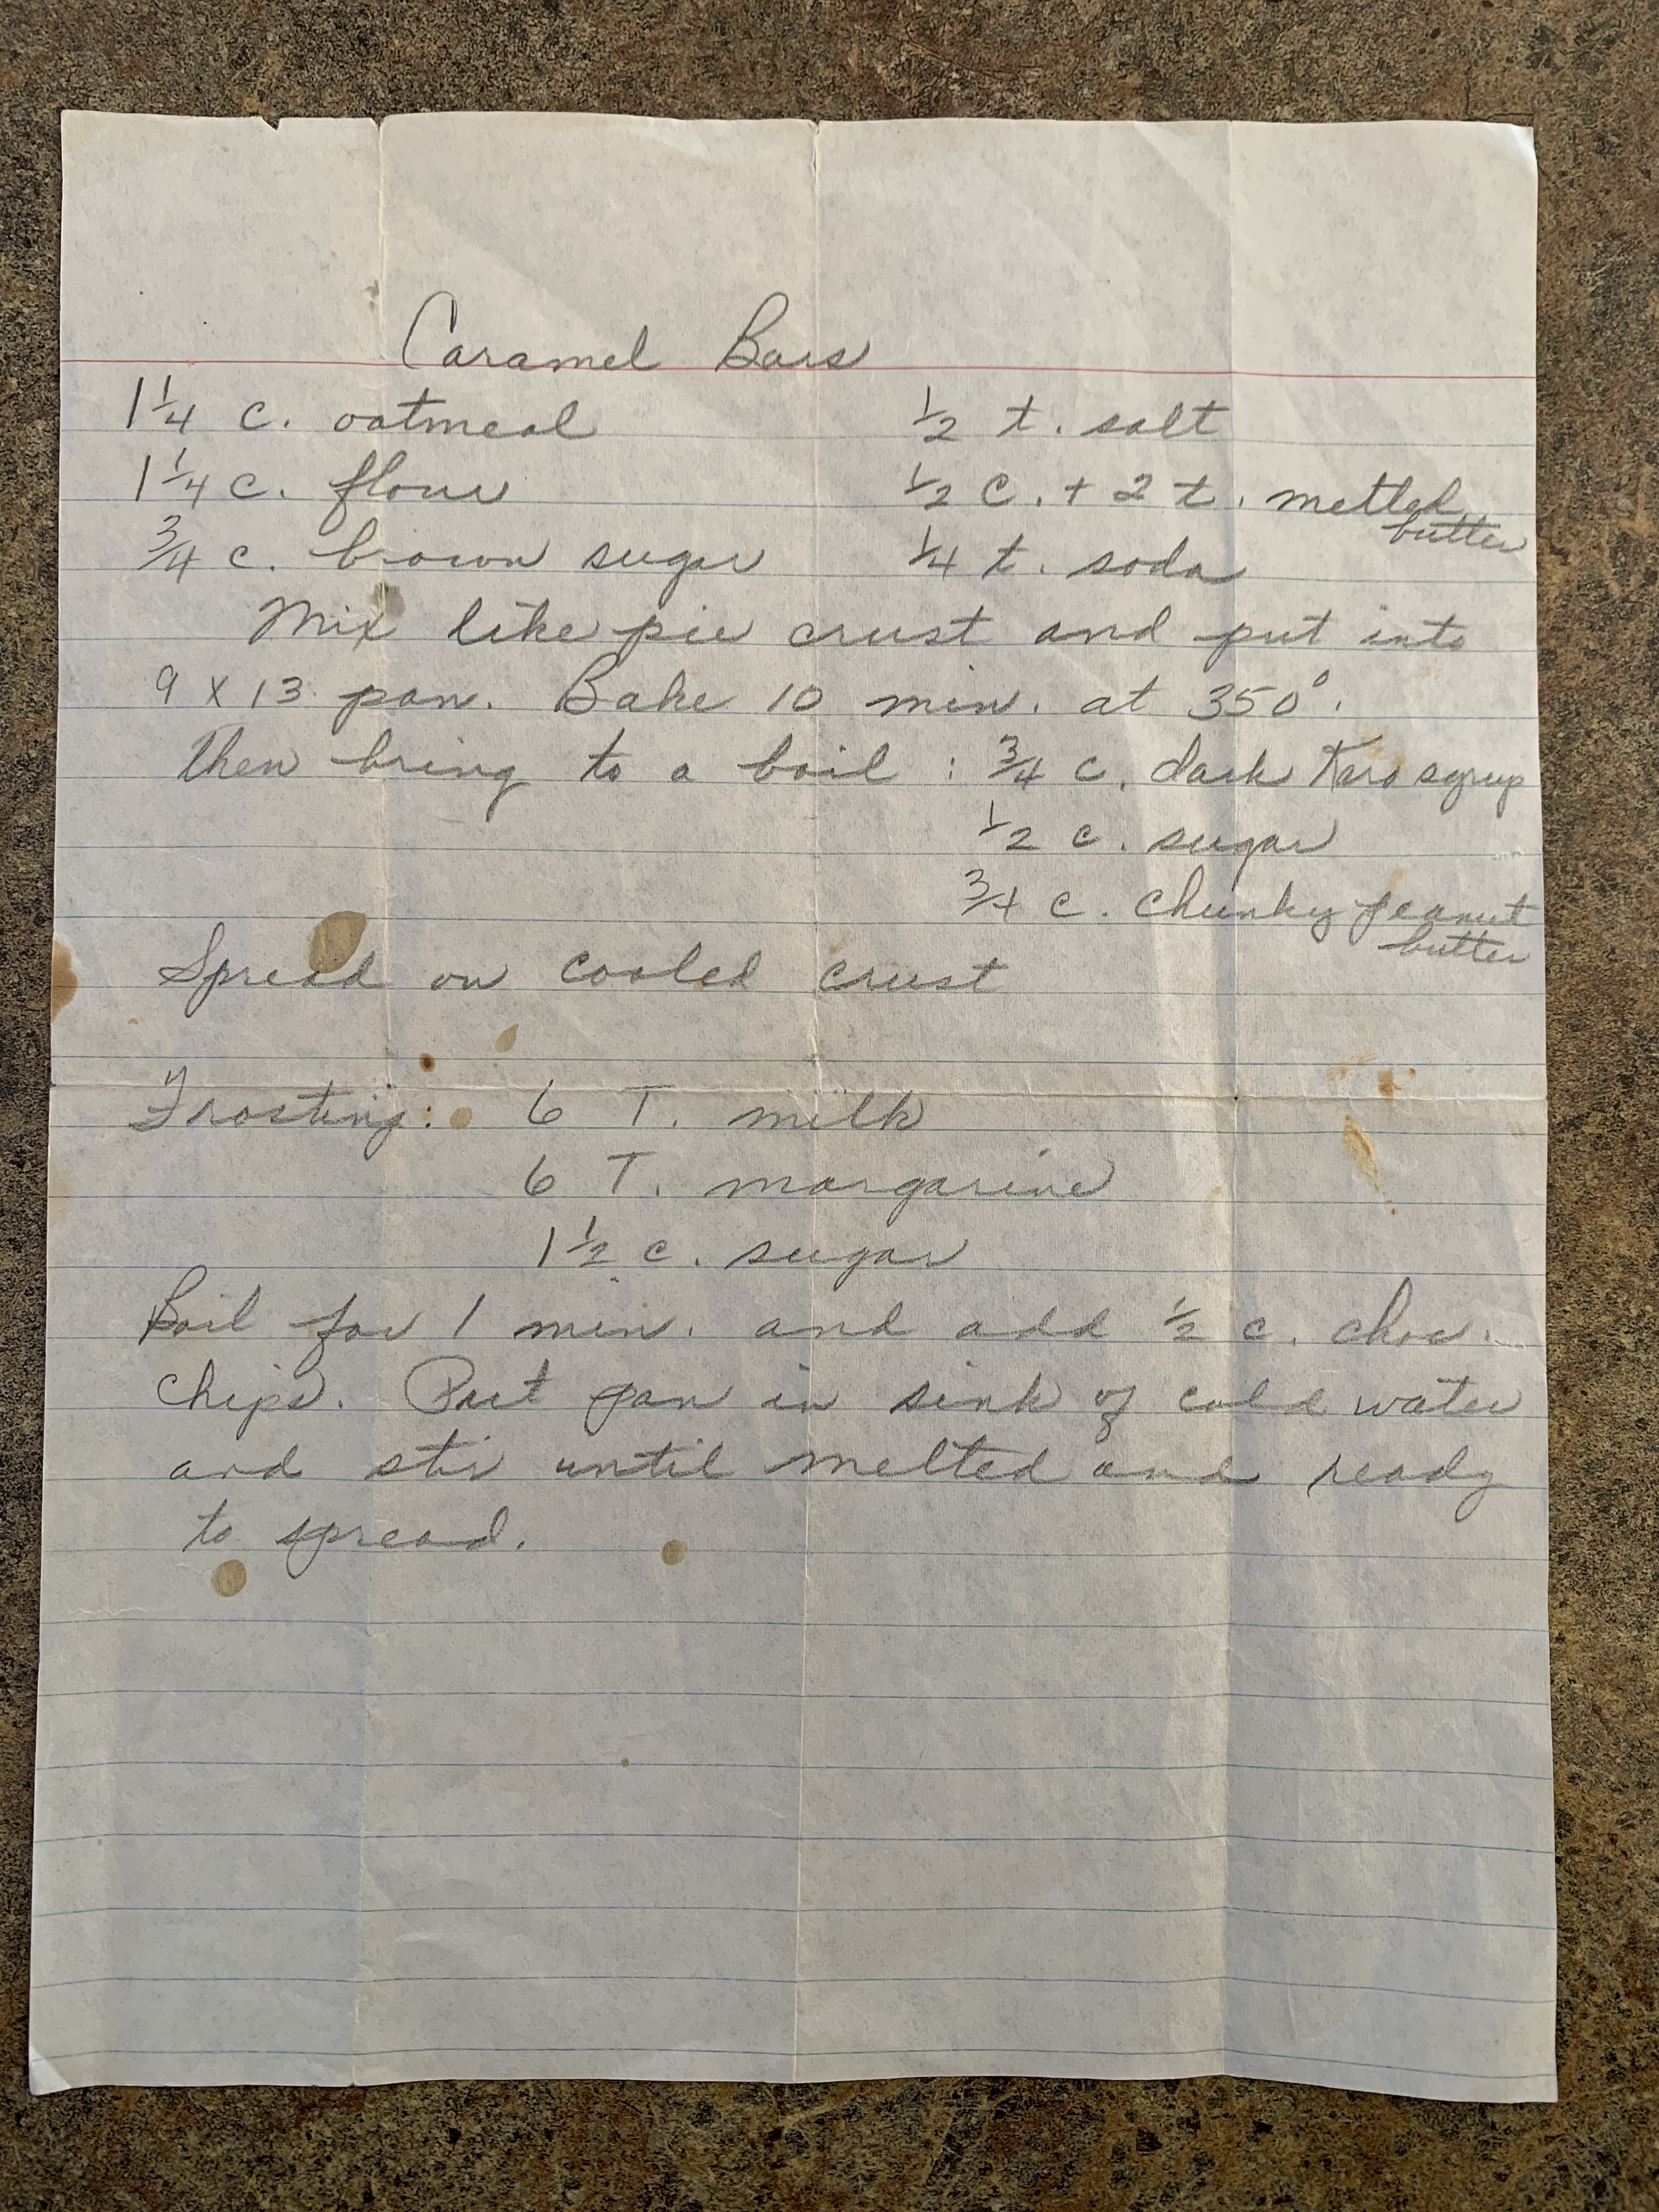 Caramel Bars
1 1/4 c. oatmeal 1/2 t. salt
1 1/4 c. flour 1/2 c. + 2 t. metled
butter
3/4 c. brown sugar 1/4 t. soda
Mix like pie crust and put into
9 x 13 pan. Bake 10 min. at 350°.
Then bring to a boil : 3/4 c. dark Karo syrup
1/2 c. sugar
3/4 c. chunky peanut
butter
Spread on cooled crust
Frosting: 6 T. milk
6 T. margarine
1 1/2 c. sugar
Boil for 1 min. and add 1/2 c. choc.
chips. Put pan in sink of cold water
and stir until melted and ready
to spread.